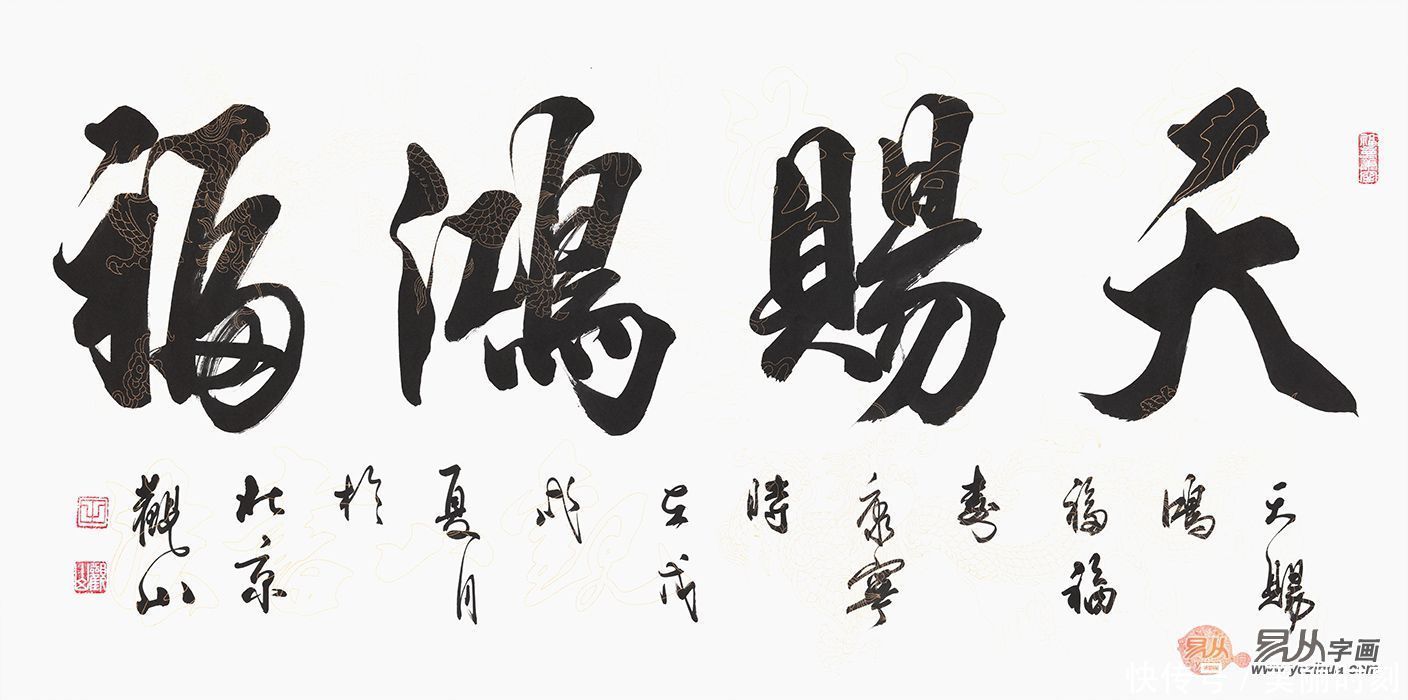 天賜鴻福
天賜
鴻
福福
壽
康寧
時
在戊
戌
夏月
於
北京
觀山
易从
易从字画
www.yczihua.com
快传号 / 美丽时刻